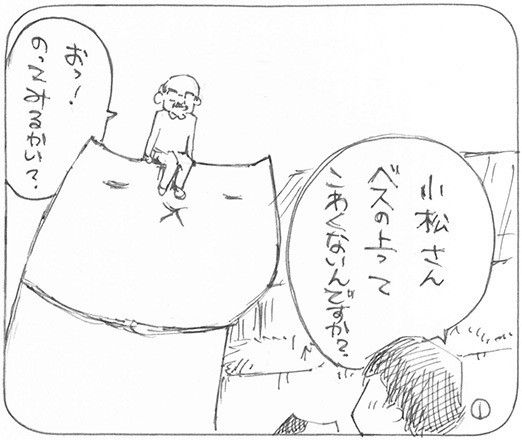 小松さん
ベスの上って
こわくないんですか?
おっ!
のってみるかい?
1